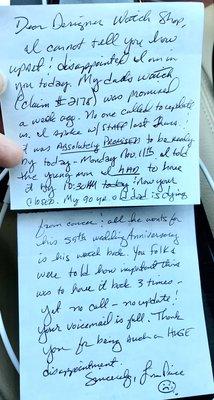 Dear Designer Watch Shop,
I cannot tell you how
upset & disappointed I am in
you today. My dad's watch
(claim # 2178) was promised
a week ago. No one called to update
us. I spoke w/ STAFF last Thurs. &
it was Absolutely Promised to be ready
by today - Monday Nov. 11th. I told
the young man I HAD to have
it by 10:30AM today & now your
closed. My 90 yr. old dad is dying
from cancer & all he wants for
his 55th wedding Anniversary
is his watch back. You folks
were told how important this
was to have it back 3 times -
yet no call - no update!
Your voicemail is full. Thank
you for being such a HUGE
disappointment.
Sincerely,